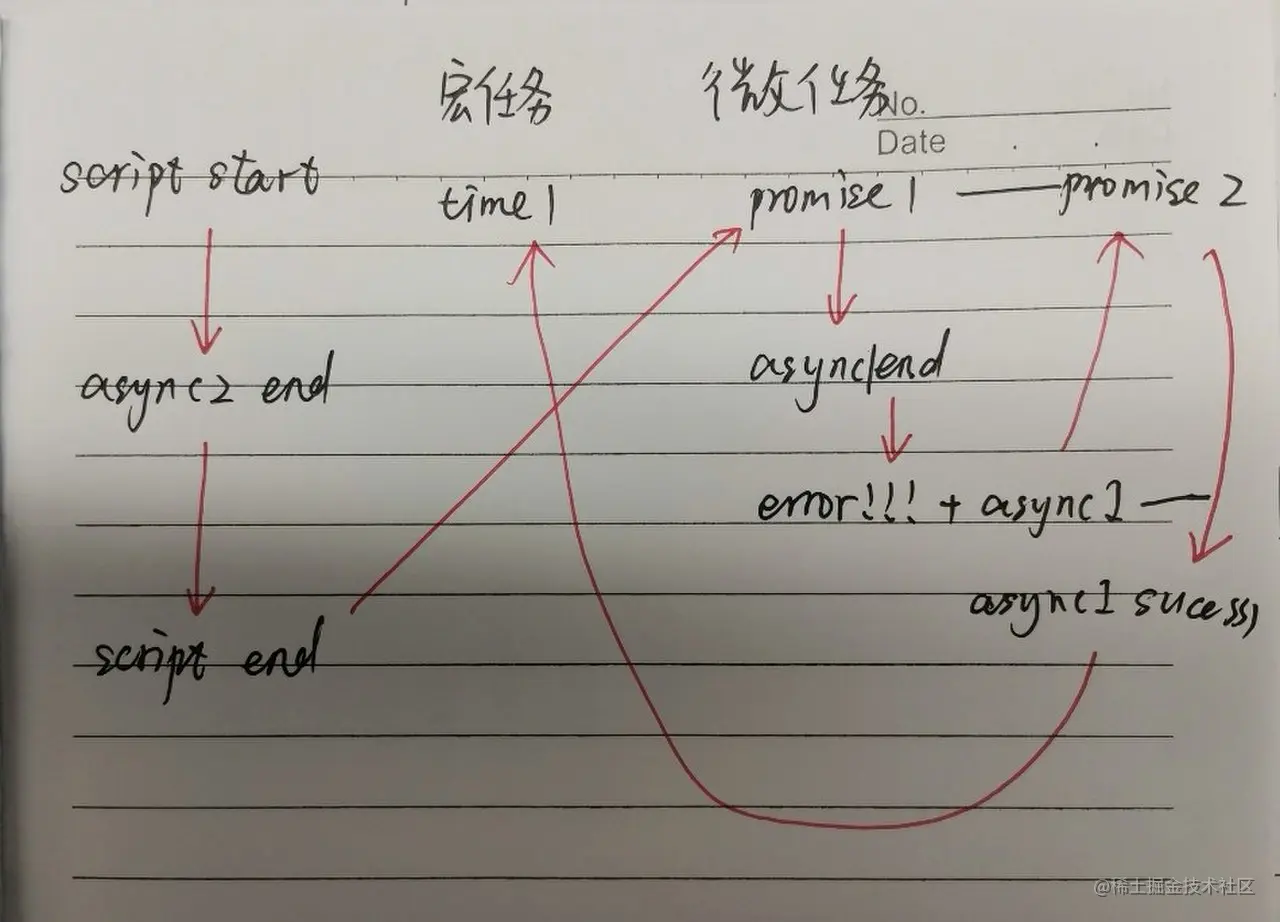 宏任务 微任务
No.
Date
script start time1 promise1 — promise 2
async2 end async1end
error!!! + async1 —
async1 sucess
script end
@稀土掘金技术社区